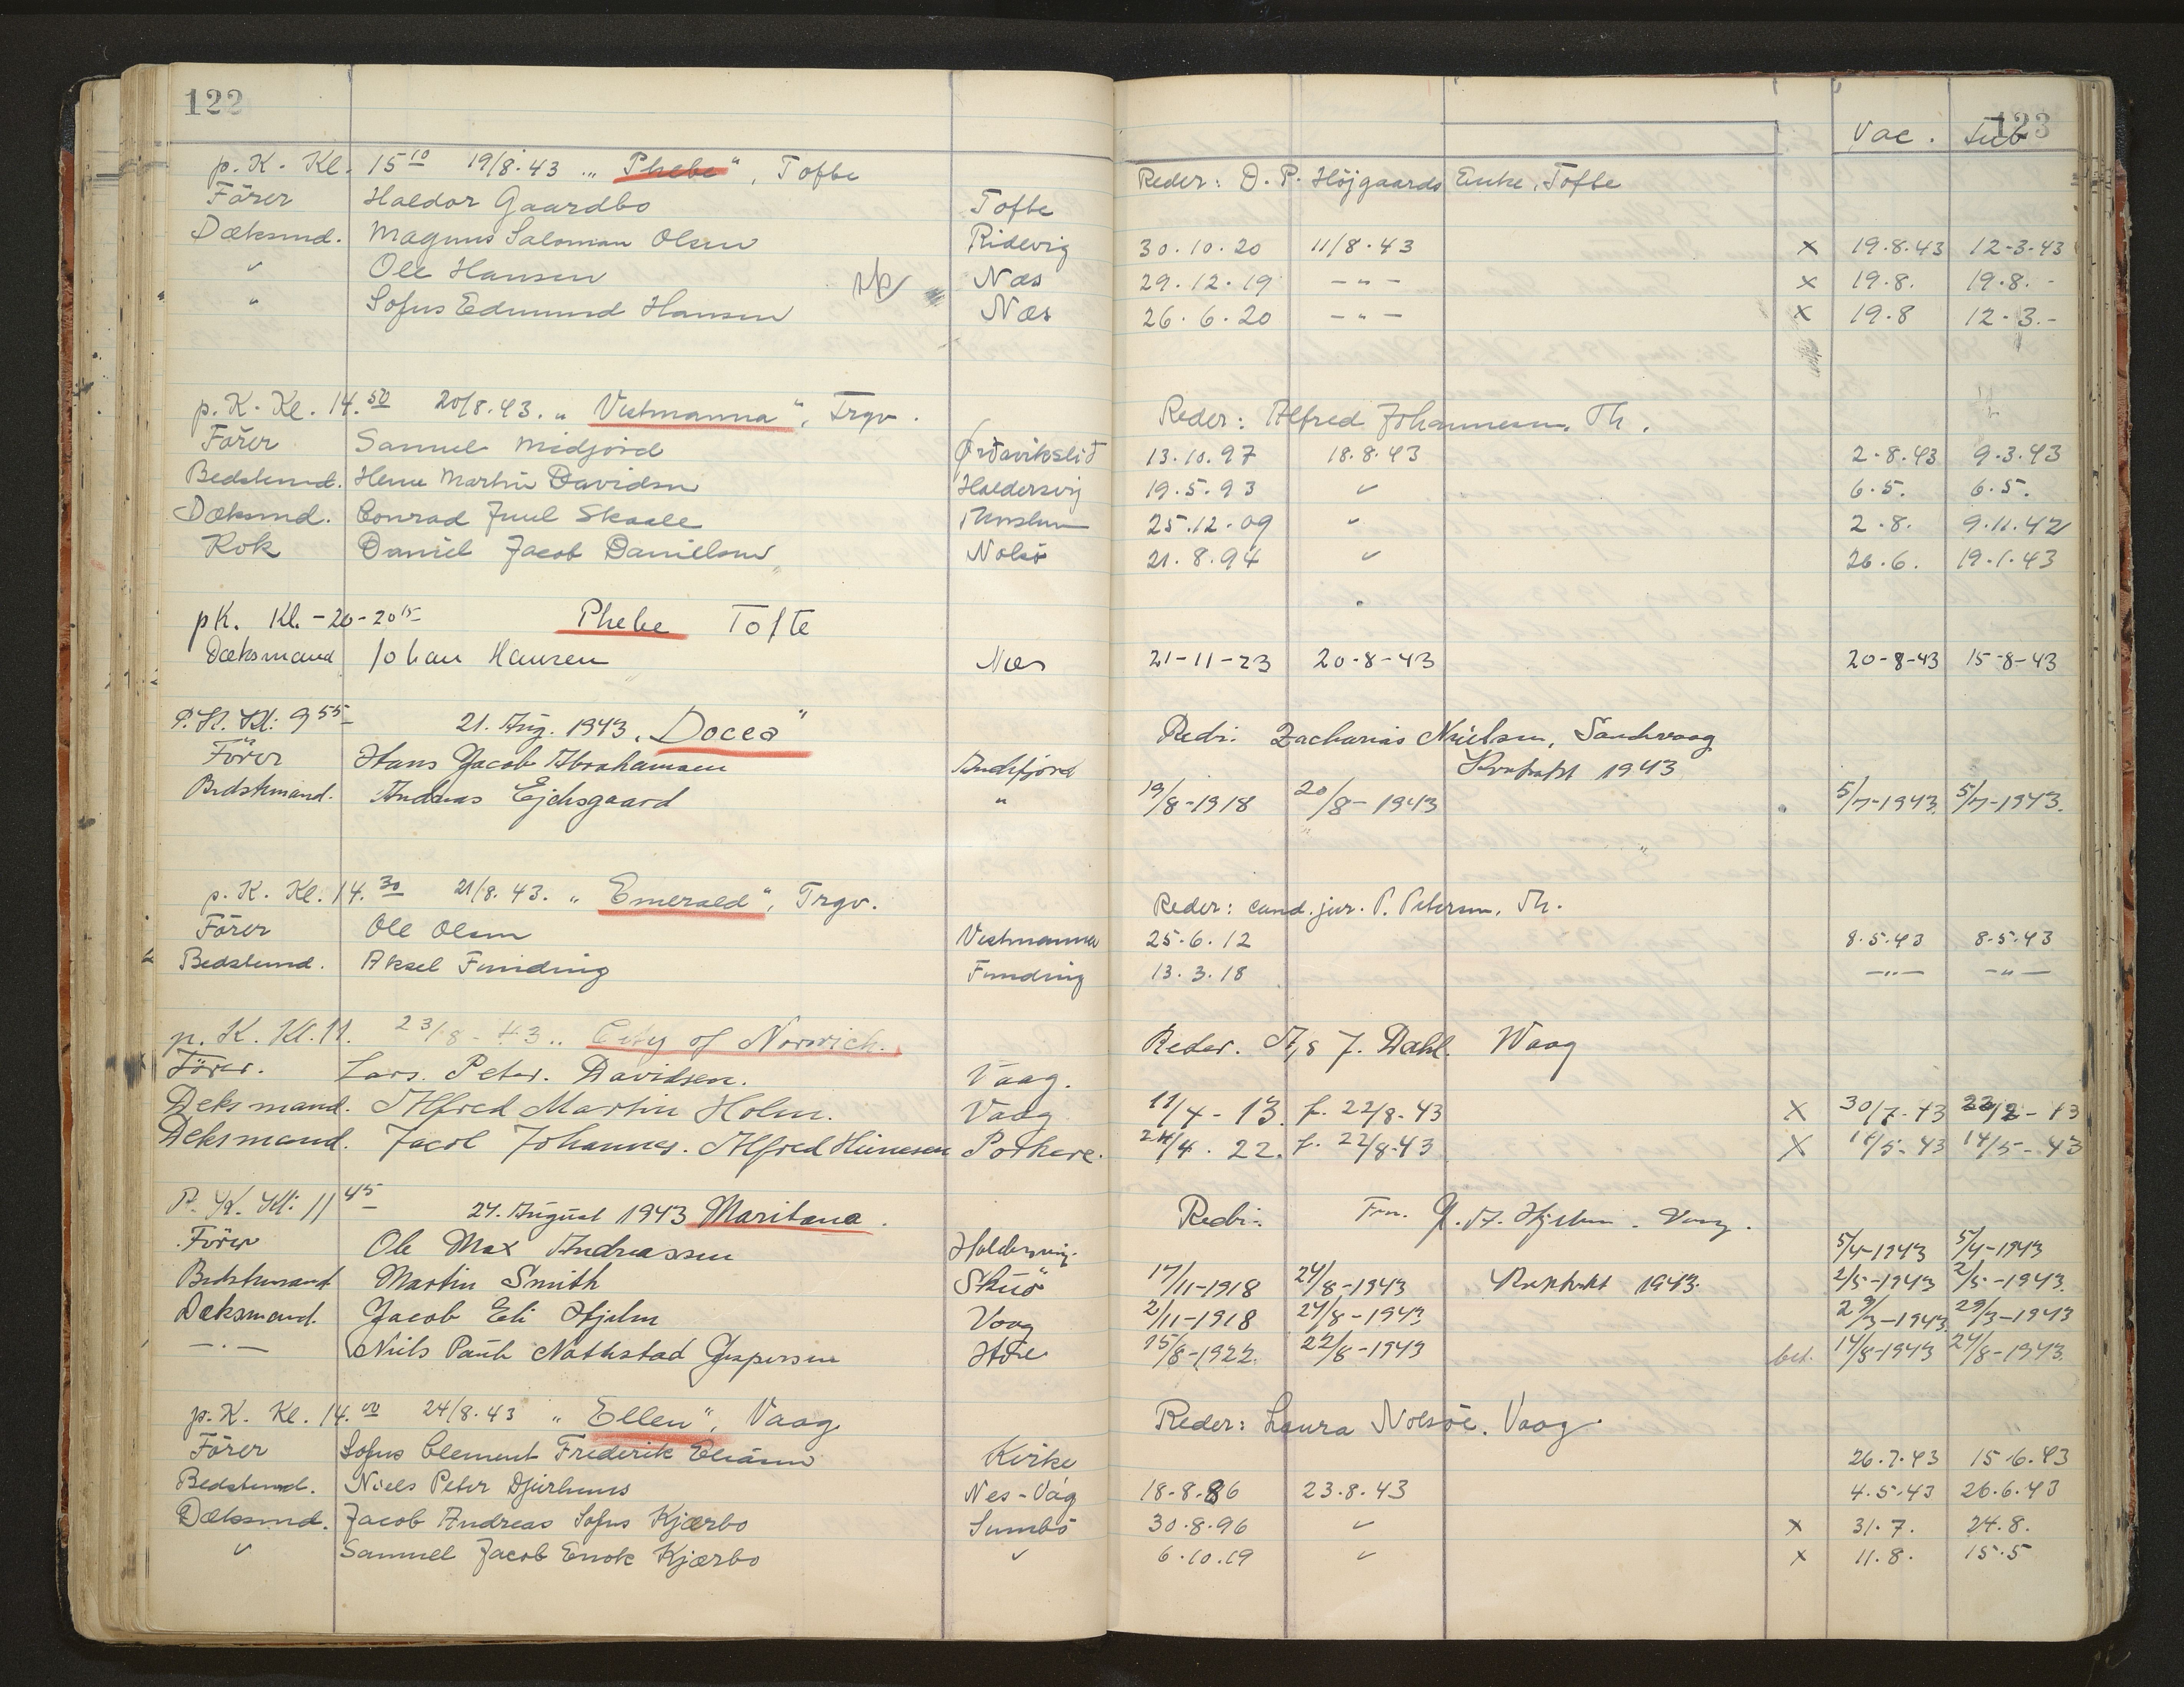 122
123
Vac. Tub
p. K. Kl. 15 10 19/8.43 „Phebe“, Tofte Reder: D. P. Højgaards Enke, Tofte
Förer Haldor Gaardbo Tofte
Dæksmd. Magnus Salomon Olsen Ridevig 30.10.20 11/8.43 x 19.8.43 12-3-43
" Ole Hansen Næs 29.12.19 -"- x 19.8. 19.8.-
" Sofus Edmund Hansen Næs 26.6.20 -"- x 19.8 12-3.-
p. K. Kl. 14.50 20/8.43. „Vestmanna“, Trgv. Reder: Alfred Johannesen, Th.
Förer Samuel Midjord Ørdavikslid 13.10.97 18.8.43 2-8.43 9.3.43
Bedstemd. Hene Martin Davidsen Haldersvig 19.5.93 " 6.5. 6.5.
Dæksmd. Conrad Juul Skaale Thorshavn 25.12.09 " 2.8. 9.11.42
Kok Daniel Jacob Danielsen Nolsö 21.8.94 " 26.6. 19.1.43
pK. Kl. -20-20 15 Phebe Tofte
Dæksmand Johan Hansen Næs 21-11-23 20-8-43 20-8-43 15-8-43
P. K. Kl: 9 55 21. Aug. 1943. „Docea“ Redr: Zacharias Nielsen, Sandvaag
Förer Hans Jacob Abrahamsen Andefjord Kontrakt 1943
Bedstemand. Andreas Ejdesgaard " 19/8-1918 20/8-1943 5/7-1943. 5/7-1943.
p. K. Kl. 14.30 21/8.43. „Emerald“, Trgv. Reder: cand. jur. P. Petersen, Th.
Förer Ole Olsen Vestmanna 25.6.12 8.5.43 8.5.43
Bedstemd. Aksel Funding Funding 13.3.18 -"- -"-
p. K. Kl. 11. 23/8-43 „City of Norwich. Reder. A/s J. Dahl. Waag
Förer. Lars. Peter. Davidsen. Vaag.
Deksmand. Alfred Martin Holm. Vaag 11/4-13. f. 22/8-43 X 30/7-43
Deksmand. Jacob Johannes. Alfred Porkere. 24/4.22. f. 22/8-43 X 14/5-43 14/5-43
P. K. Kl: 11 45 24. August 1943 Maritana. Redr: Hjelm. Vaag.
Förer Ole Max Andreassen Haldersvig. 5/4-1943 5/4-1943
Bedstemand Martin Smith Skuö 17/11-1918 24/8-1943 Kontrakt 1943. 2/5-1943 2/5-1943.
Dæksmand. Jacob Eli Hjelm Vaag 2/11-1918 24/8-1943 29/3-1943 29/3-1943
-"- Niels Pauli Nathstad Jespersen 15/8-1922. 22/8-1943 bet. 14/8-1943 24/8-1943.
p. K. Kl. 14.00 24/8.43 „Ellen“, Vaag Reder: Laura Nolsöe. Vaag.
Förer Sofus Clement Frederik Eliasen Kirke 26.7.43 15.6.43
Bedstemd. Niels Peter Djurhuus Nes-Våg 18-8.86 23.8.43 4.5.43 26.6.43
Dæksmd. Jacob Andreas Sofus Kjærbo Sumbö 30.8.96 " x 31.7. 24.8.
" Samuel Jacob Enok Kjærbo " 6.10.19 " x 11.8. 15.5